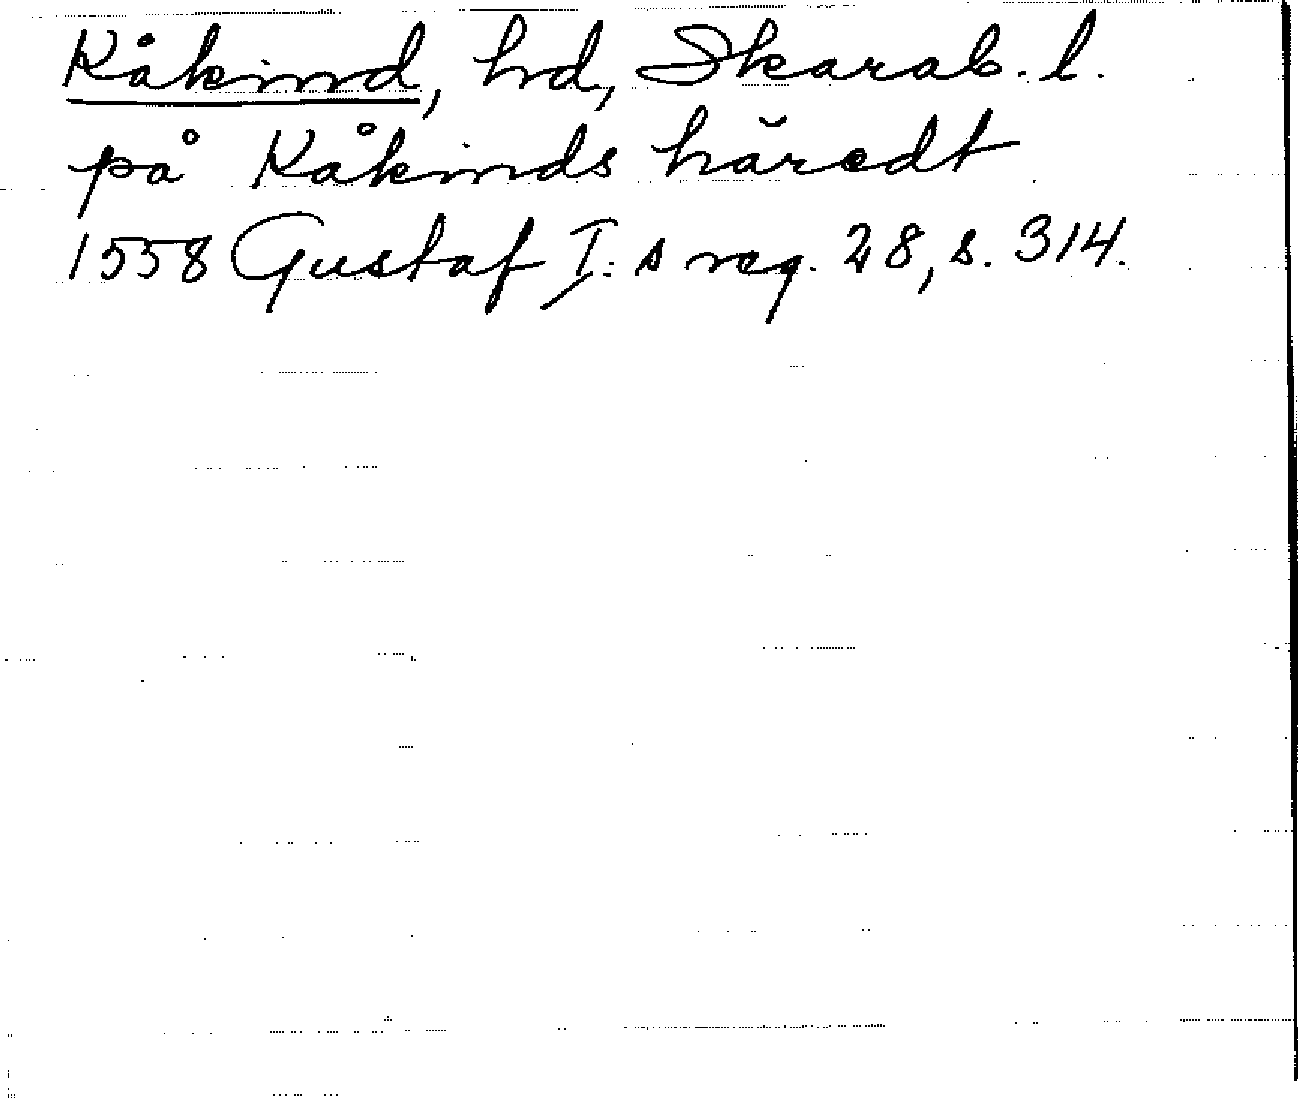 Kåkind, hd, Skarab. l.
på Kåkinds häredt
1558 Gustaf I:s reg. 28, s. 314.